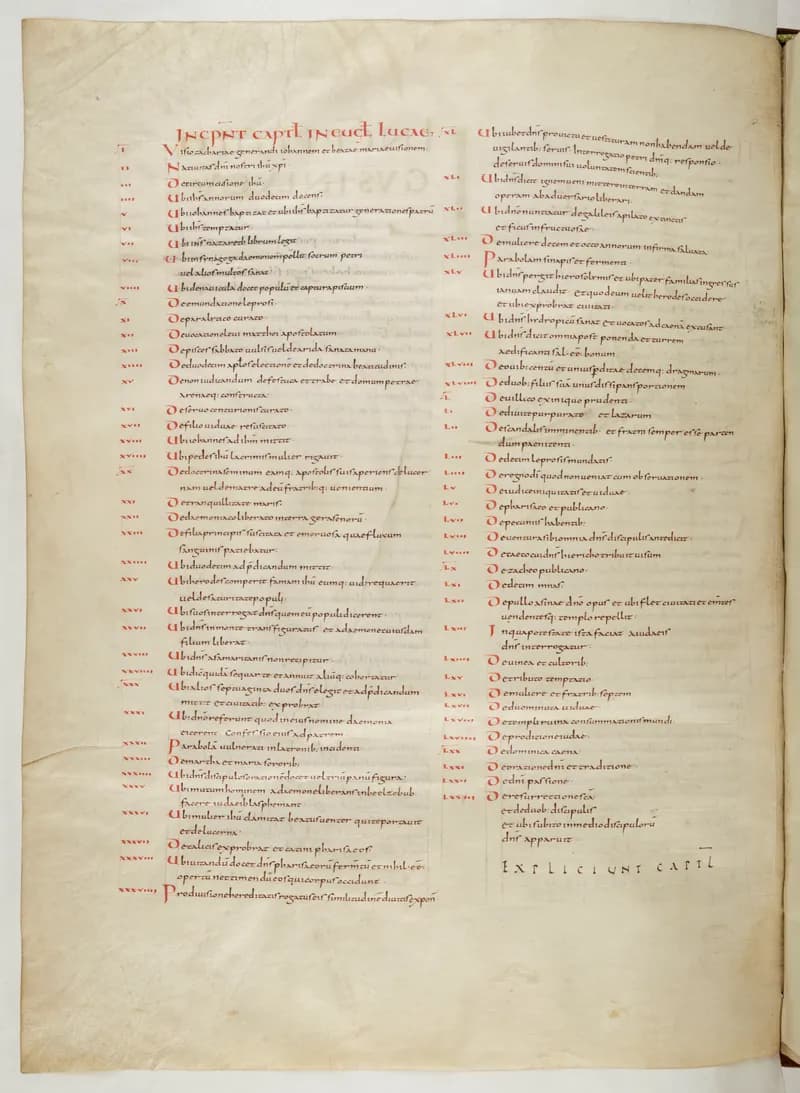 INCPNT CAPITL IN EUGL LUCAE.
I Visio zachariae generandi iohannem et beatae mariae uisionem.
II Natiuitas dni nostri ihu xpi
III De circumcisione ihu.
IIII Ubi ihs annorum duodecim docens.
V Ubi iohannes baptizat et ubi ihs baptizatur generationes patru
VI Ubi ihs temptatur
VII Ubi ihs in nazareth librum legit
VIII Ubi in synagoga daemonem pellit socrum petri
uel alios multos sanat
VIIII Ubi de nauicula docet populu et captura piscium.
X De emundatione leprosi.
XI De paralytico curato.
XII De uocatione leui matthei apostolatum
XIII De spicis sabbato uulsis uel de arida sanata manu.
XIIII De duodecim aplos electione et de doctrina beatitudinis.
XV De non iudicandum de festuca et trabe et domum petrae
arenaeq: constructa.
XVI De seruo centurionis curato.
XVII De filio uiduae resuscitato
XVIII Ubi iohannes ad ihm mittit
XVIIII Ubi pedes ihu lacrimis mulier rigauit.
XX De doctrina seminum eamq: apostolis suis aperiens de lucer
nam uel de matre ad eu fratrib:q: uenientium.
XXI De tranquillitate maris.
XXII De daemoniaco liberato in terra gerasenoru.
XXIII De filia principis suscitata et emorosa quae fluxum
sanguinis patiebatur.
XXIIII Ubi duodecim ad pdicandum mittit.
XXV Ubi herodes comperit famam ihu eumq: uidere quaerit
uel de saturitate populi.
XXVI Ubi suos interrogat dns quem eu populi dicerent.
XXVII Ubi dns in monte transfiguratus et a daemone cuiusdam
filium liberat.
XXVIII Ubi dns a samaritanis non recipitur
XXVIIII
XXX Ubi alios septuaginta duos dns elegit et ad pdicandum
mittit et ciuitatib: exprobrat
XXXI Ubi dno referunt quod in eius nomine daemonia
eicerent. Confessio eius ad patrem
XXXII Parabola uulnerati in latronib: incidenti
XXXIII De martha et maria sororib:
XXXIIII Ubi dns discipulos oratione docet uel triu panu figura.
XXXV Ubi mutum hominem a daemone liberans in beelzebub
facere iudaei blasphemant
XXXVI Ubi mulier ihu clamitat beatus uenter qui te portauit
et de lucerna.
XXXVII De talicis exprobrat et catini pharisaeos
XXXVIII Ubi uitandu docet dns pharisaeoru fermtu et nihil ee
opertu nec timendu eos qui corpus occidunt
XXXVIIII Pro diuisione hereditatis rogatus eis similitudine diuitis expon
XL Ubi iubet dns pro uictu et uestituram non habendam uel de
uigilantib: seruis. Interrogatio petri dmq: responsio.
de seruis domini sui uoluntatem scientib:
XLI Ubi dns dicit igne ueni mittere in terram et dandam
operam ab aduersario liberari.
XLII Ubi dno nuntiatur de galileis a pilato extinctis
et ficus infructuosae
XLIII De muliere decem et octo annorum infirma saluata
XLIIII Parabolam sinapis et fermenti.
XLV Ubi dns pergit hierosolymis et ubi pater familias ingressus
ianuam claudit et quod eum uelit herodes occidere
et ubi exprobrat ciuitati.
XLVI Ubi dns hydropicu sanat et uocatos ad caena excusant
XLVII Ubi dns dicit omnia post ponenda et turrem
aedificanti sal et bonum
XLVIII De ouib: centu et unius perditae decemq: dragmarum.
XLVIIII De duob: filiis sua unus dissipans portionem
L De uillico ex iniquo prudenti
LI De diuite purpurato et lazarum
LII De scandalis imminentib. et fratri semper esse parcen
dum paenitenti.
LIII De decim leprosis mundatis
LIIII De regno di quod non ueniat cum obseruationem.
LV De iudice iniquitatis et uiduae
LVI De pharisaeo et publicano.
LVII De pecuniis habentib:
LVIII De uentura sibi omnia dns discipulis ante dicit.
LVIIII De caeco cui dns hiericho tribuit uisum
LX De zacheo publicano.
LXI De decem mnas.
LXII De pullo asinae dno opus et ubi flet ciuitati et emtes
uendentesq: templo repellit.
LXIII In qua potestate ista faciat a iudaeis
dns interrogatur.
LXIIII De uinea et cultorib:
LXV De tributo temptatio
LXVI De muliere et fratrib: septem
LXVII De duo minuta uiduae
LXVIII De templi ruina consummationis mundi
LXVIIII De proditione iudae.
LXX De dominica caena
LXXI De oratione dni et traditione
LXXII De dni passione
LXXIII De resurrectione sca
et de duob: discipulis
et ubi subito in medio discipuloru
dns apparuit
EXPLICIUNT CAPTL